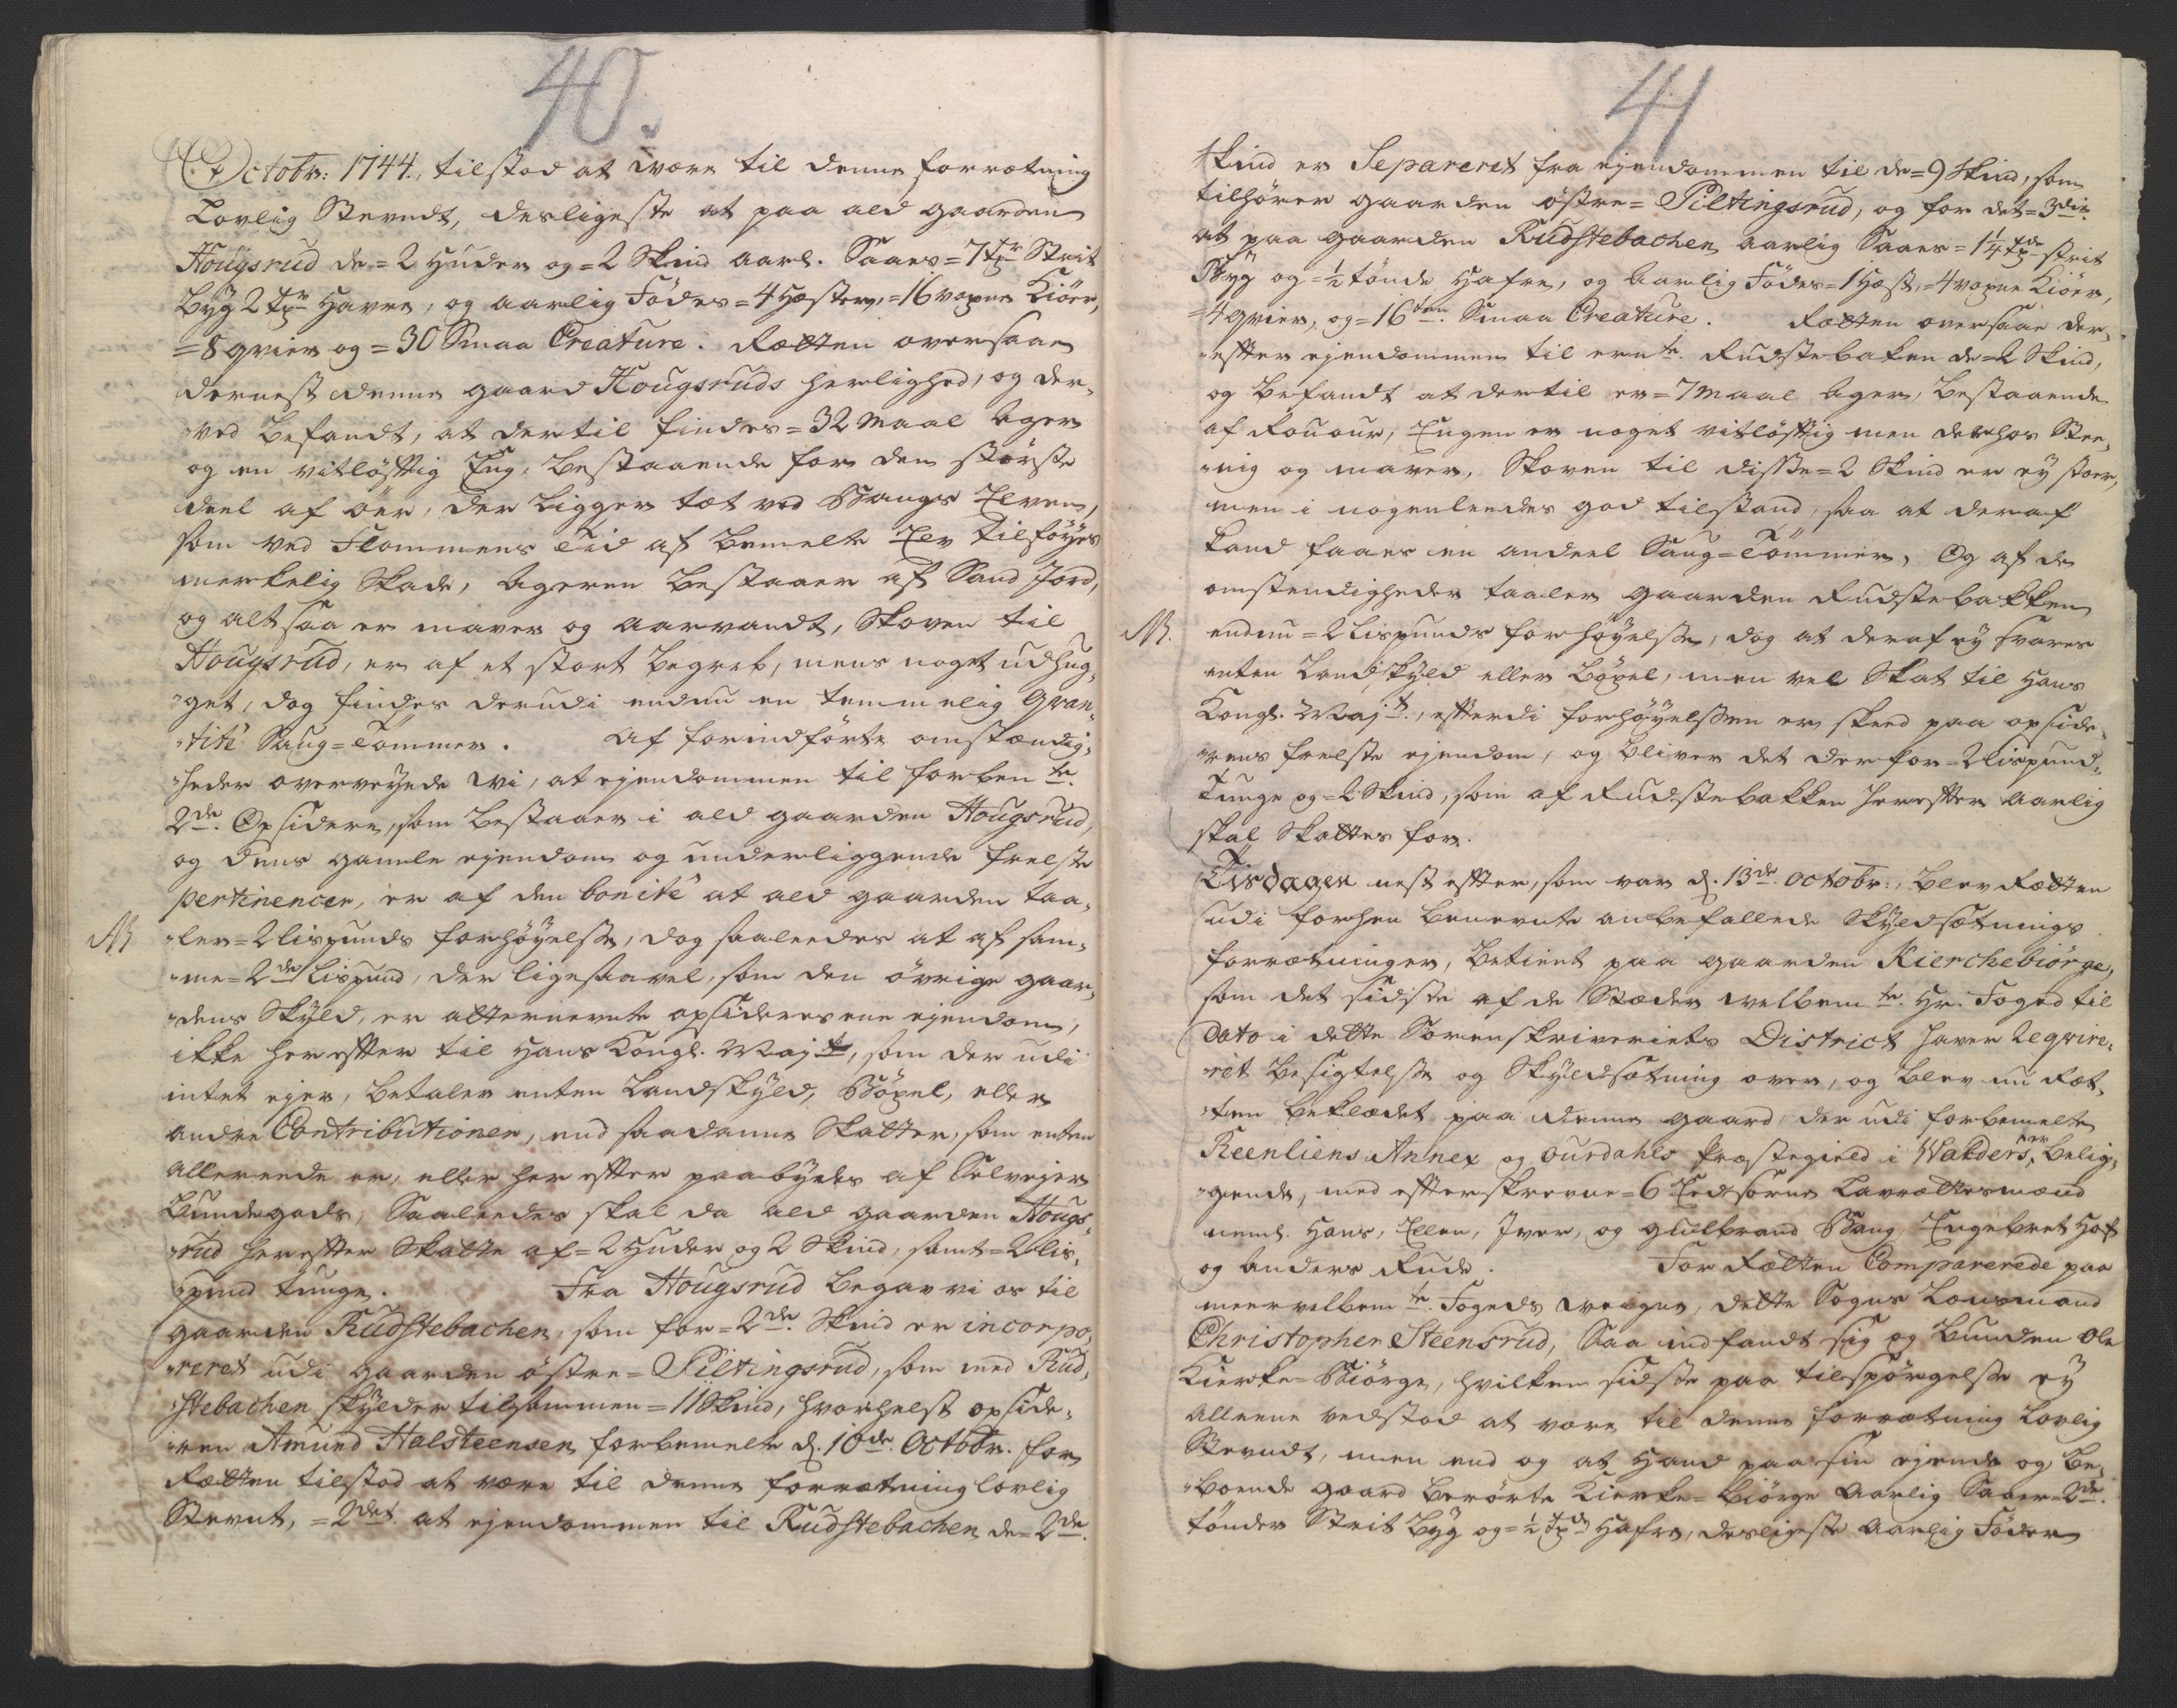 40.
Octobr: 1744., tilstod at være til denne forrætning
Lovlig Stevndt, desligeste at paa ald gaarden
Hougsrud de = 2 Huder og = 2 Skind aarl. Saaes = 7 tdr Strit
Byg 2 tdr Havre, og aarlig Födes = 4 Hæster, = 16 voxne Kiöer,
= 8 qvier og = 30 Smaa Creature. Rætten oversaae
dernest denne gaard Hougsruds herlighed, og der-
ved befandt, at dertil findes = 32 Maal Ager
og en vitlöftig Eng, bestaaende for den störste
deel af öer, der ligger tæt ved Bangs Elven,
som ved Flommens Tid af bemelte Elv tilföyes
merkelig Skade, Ageren bestaaer af Sand Jord,
og altsaa er maver og aarvandt, Skoven til
Hougsrud, er af et stort begreb, mens noget udhug-
get, dog findes derudi endnu en temmelig qvan-
tité Saug = Tömmer. Af forindförte omstændig-
heder overveyede vi, at ejendommen til forben te.
2de. Opsidere, som bestaaer i ald gaarden Hougsrud,
og dens gamle ejendom og underliggende frelste
pertinencer, er af den bonité at ald gaarden taa-
NB ler = 2 lispunds forhöyelse, dog saaleedes at af sam-
me = 2de Lispund, der ligesaavel, som den övrige gaar-
dens Skyld, er alternevnte opsideres ene ejendom,
ikke herefter til Hans Kongl. Majt, som der udi
intet ejer, betaler enten Landskyld, Böxel, eller
andre Contributioner, end saadanne Skatter, som enten
allereede er, eller her efter paabydes af Selvejer
Bundegods, Saaleedes skal da ald gaarden Hougs-
rud herefter Skatte af = 2 Huder og 2 Skind, samt = 2 lis-
pund tunge. Fra Hougsrud begav vi os til
gaarden Rudstebachen, som for = 2de. Skind er incorpo-
reret udi gaarden östre = Piltingsrud, som med Rud-
stebachen skylder tilsammen = 11 Skind, hvorhelst opside-
ren Amund Halsteensen forbemelte d. 10de. Octobr. for
Rætten tilstod at være til denne forrætning lovlig
Stevnt, = 2det. at ejendommen til Rudstebachen de = 2de.
41
Skind er Separeret fra ejendommen til de = 9 Skind, som
tilhörer gaarden östre = Piltingsrud, og for det = 3die
at paa gaarden Rudstebachen aarlig Saaes = 1 1/4 tde strit
Byg og = 1/2 tönde Hafre, og aarlig Födes = 1 Hæst, = 4 voxne Kiöer,
= 4 qvier, og = 16ten. Smaa Creature. Rætten oversaae der-
efter ejendommen til ernte. Rudstebaken de = 2 Skind,
og befandt at dertil er = 7 Maal Ager, bestaaende
af Rouour, Engen er noget vitlöftig men derhos Stee-
nig og maver, Skoven til disse = 2 Skind er ey stoer,
men i nogenleedes god tilstand, saa at deraf
kand faaes en andeel Saug = Tömmer, Og af de
omstendigheder taaler gaarden Rudstebakken
NB. endnu = 2 Lispunds forhöyelse, dog at deraf ey svares
enten Landskyld eller Böxel, men vel Skat til Hans
Kongl. Majt., efterdi forhöyelsen er skeed paa opside-
rens frelste ejendom, og bliver det derfor = 2 lispund
Tunge og = 2 Skind, som af Rudstebakken herefter aarlig
skal Skattes for.
Tisdagen nest efter, som var d. 13de. Octobr:, blev Rætten
udi forhen benevnte anbefallede Skyldsætnings
forrætninger, betient paa gaarden Kierchebiörge,
som det sidste af de Stæder welbemte. Hr. Foged til
Dato i dette Sorenskriveriets District haver reqvire-
ret Besigtelse og Skyldsætning over, og blev nu Ræt-
ten beklædet paa denne gaard, der udi forbemelte
Reenliens Annex og Ourdahls Præstegield i Walders, er belig-
gende, med efterskrevne = 6 Eedsorne Lavrættesmænd
neml. Hans, Ellen, Iver, og gulbrand Bang, Engebret Hof
og Anders Rude. For Rætten Comparerede paa
meerwelbemte. Fogeds Weigne, dette Sogns Lensmand
Christopher Steensrud, Saa indfandt sig og Bunden Ole
Kierke = Biörge, hvilken sidste paa tilspörgelse ey
alleene vedstod at være til denne forrætning Lovlig
Stevndt, men end og at Hand paa sin ejende og be-
boende gaard berörte Kierke = Biörge Aarlig Saaer = 2de.
tönder Strit Byg og = 1/2 tde Hafre, desligeste Aarlig Föder